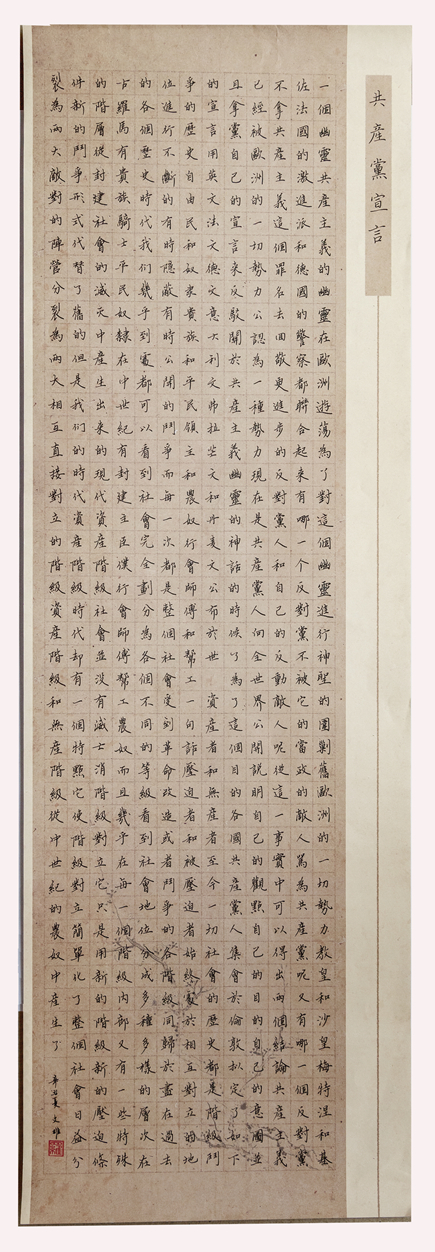 共產黨宣言
一個幽靈共產主義的幽靈在歐洲遊蕩為了對這個幽靈進行神聖的圍剿舊歐洲的一切勢力教皇和沙皇梅特涅和基
佐法國的激進派和德國的警察都聯合起來有哪一个反對黨不被它的當政的敵人罵為共產黨呢又有哪一個反對黨
不拿共產主義這個罪名去回敬更進步的反對黨人和自己的反動敵人呢從這一事實中可以得出兩個結論共產主義
已經被歐洲的一切勢力公認為一種勢力現在是共產黨人向全世界公開說明自己的觀點自己的目的自己的意圖並
且拿黨自己的宣言來反駁關於共產主義幽靈的神話的時候了為了這個目的各國共產黨人集會於倫敦擬定了如下
的宣言用英文法文德文意大利文弗拉芒文和丹麥文公布於世 資產者和無產者至今一切社會的歷史都是階級鬥
爭的歷史自由民和奴隸貴族和平民領主和農奴行會師傅和幫工一句話壓迫者和被壓迫者始終處於相互對立的地
位進行不斷的有時隱蔽有時公開的鬥爭而每一次都是整個社會受到革命改造或者鬥爭的各階級同歸於盡在過去
的各個歷史時代我们幾乎到處都可以看到社會完全劃分為各個不同的等級看到社會地位分成多種多樣的層次在
古羅馬有貴族騎士平民奴隸在中世紀有封建主臣僕行會師傅幫工農奴而且幾乎在每一個階級內部又有一些特殊
的階層從封建社會的滅亡中產生出來的現代資產階級社會並沒有滅亡消階級對立它只是用新的階級新的壓迫條
件新的鬥爭形式代替了舊的但是我们的時代資產階級時代却有一個特點它使階級對立簡單化了整個社會日益分
裂為兩大敵對的陣營分裂為兩大相互直接對立的階級資產階級和無產階級從中世紀的農奴中產生了
辛丑夏 文